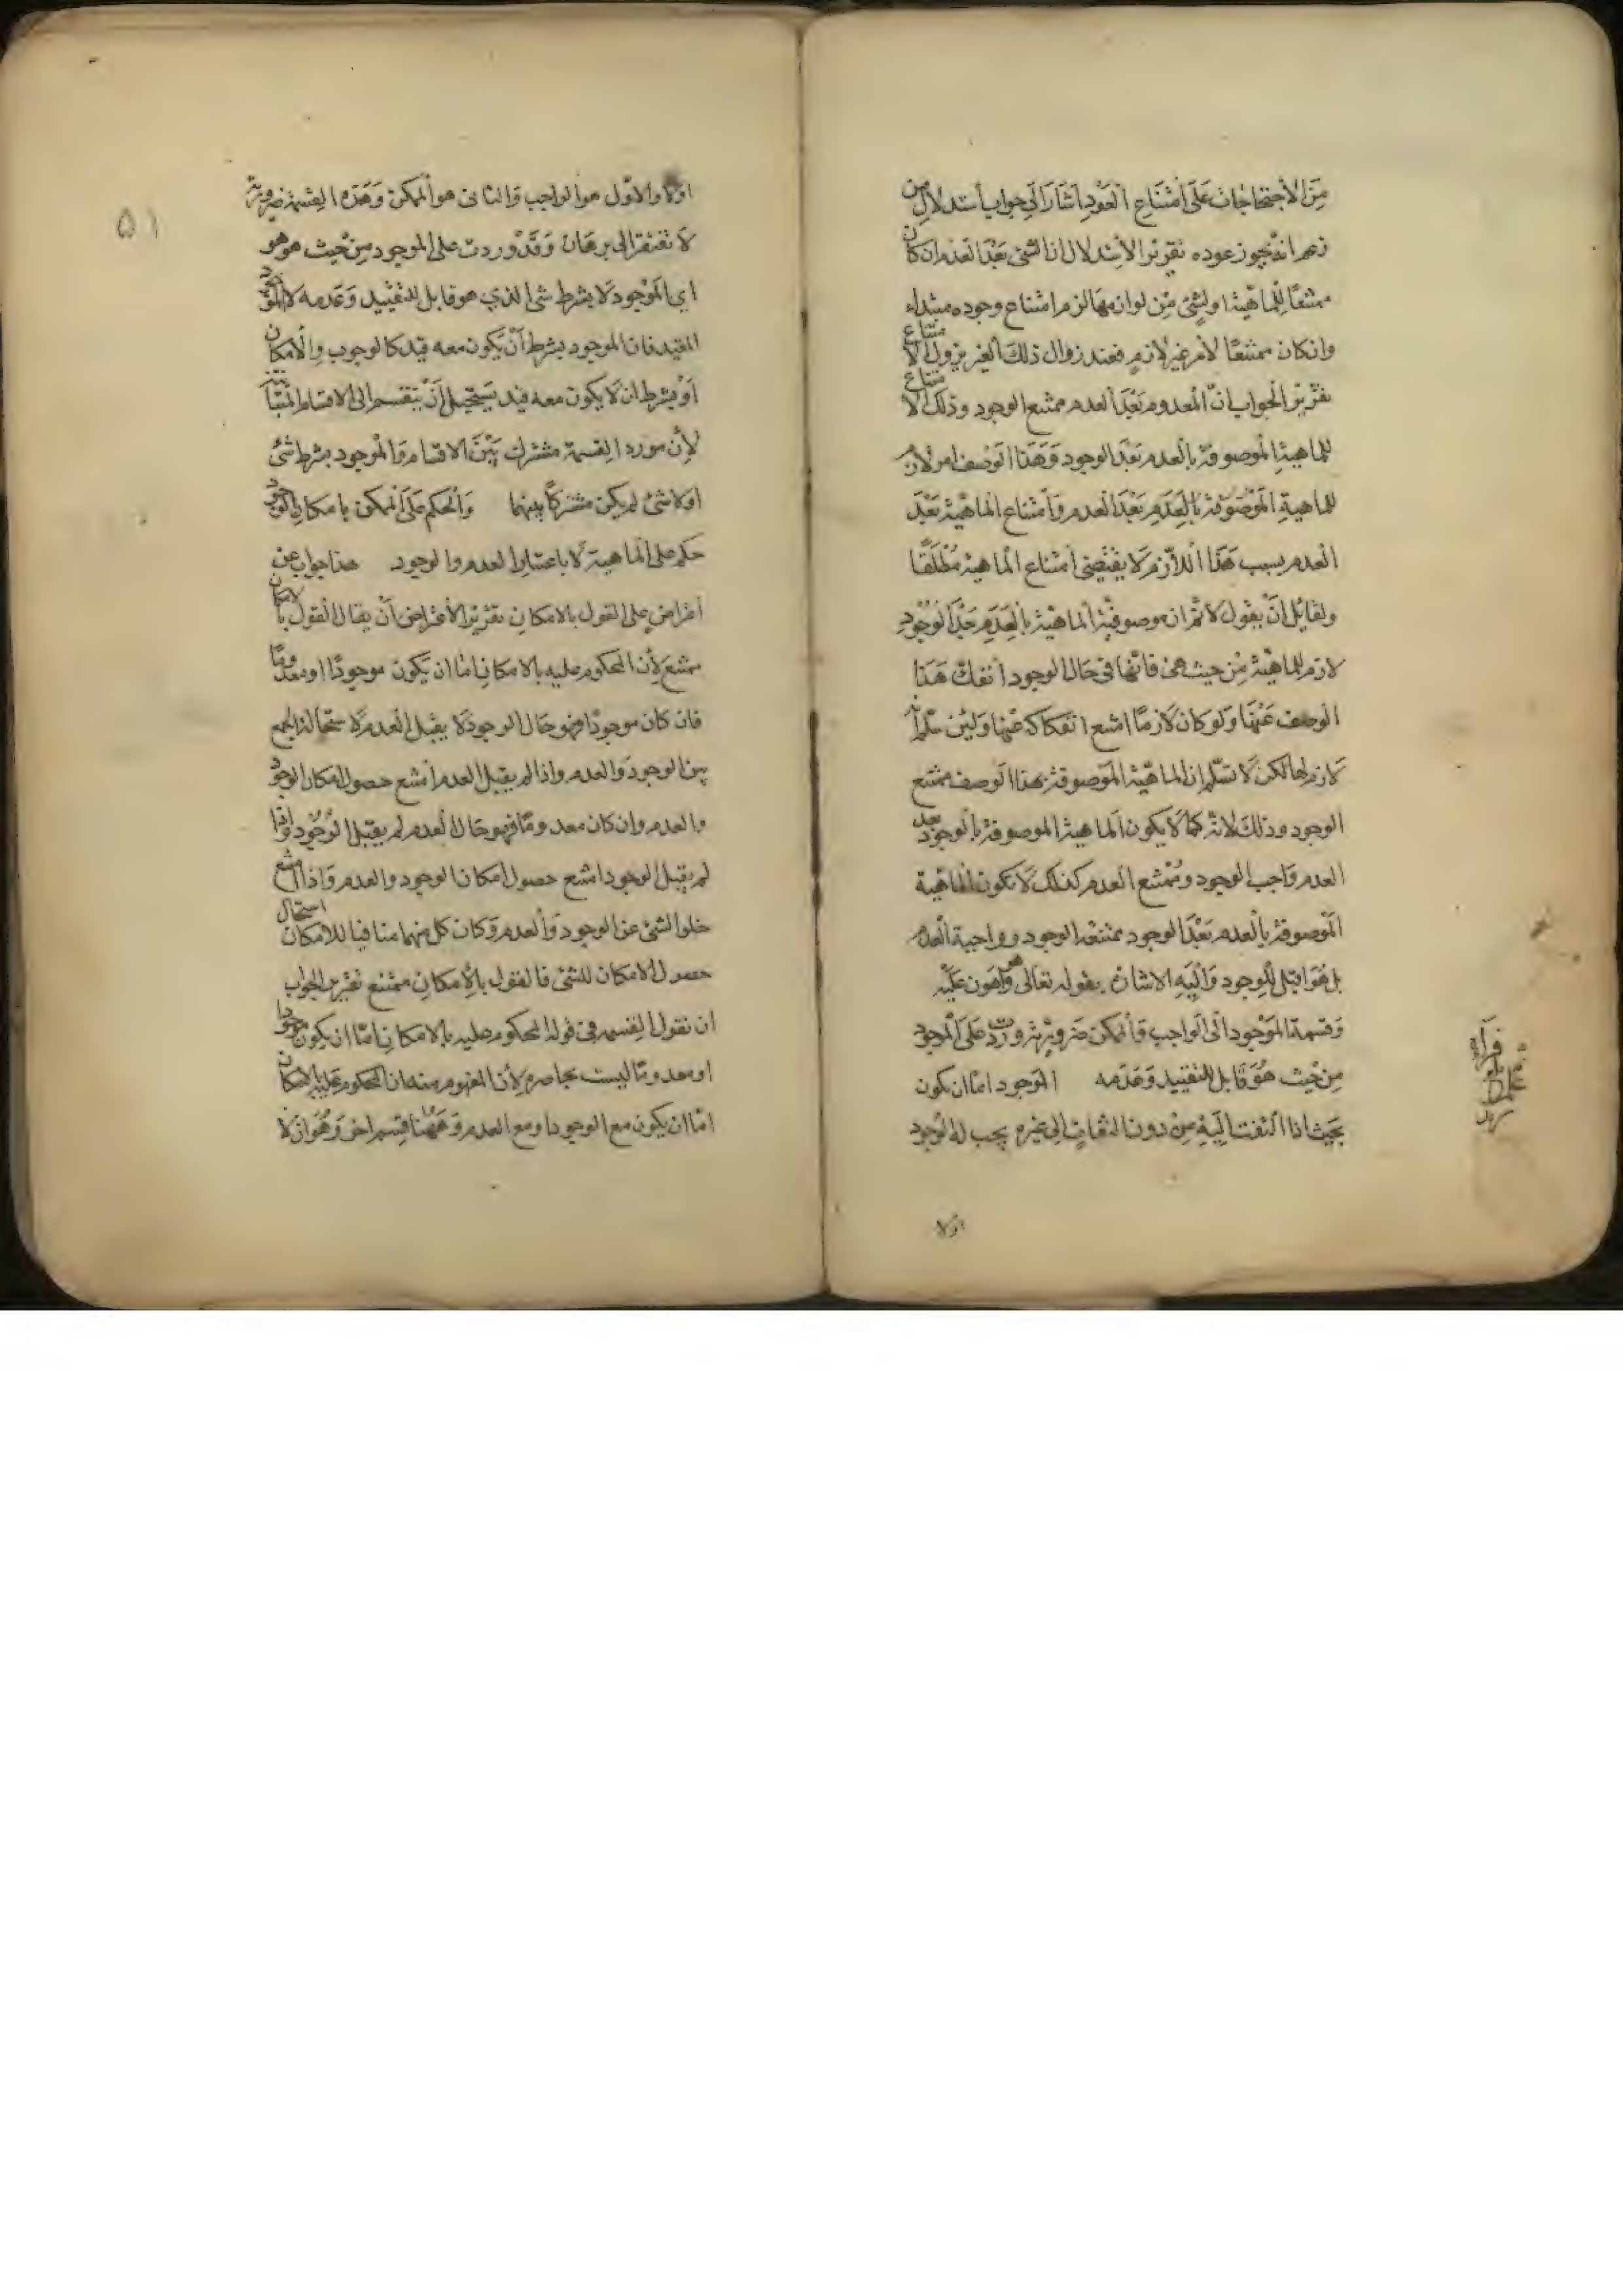 من الاحتجاجات على امتناع العود اشار الى جواب استدلال من
زعم انه يجوز عوده تقرير الاستدلال ان الشئ بعد العدم ان كان
ممتنعا للماهية او لشئ من لوازمها لزم امتناع وجوده مبتداء
وان كان ممتنعا لامر غير لازم فعند زوال ذلك الغير يزول الامتناع
تقرير الجواب ان المعدوم بعد العدم ممتنع الوجود وذلك الامتناع
للماهية الموصوفة بالعدم بعد الوجود وهذا الوصف امر لازم
للماهية الموصوفة بالعدم بعد العدم وامتناع الماهية بعد
العدم بسبب هذا اللازم لا يقتضى امتناع الماهية مطلقا
ولقائل ان يقول لا نم ان موصوفية الماهية بالعدم بعد الوجود
لازم للماهية من حيث هى فانها فى حال الوجود انفك هذا
الوصف عنها ولو كان لازما امتنع انفكاكه عنها ولئن سلم انه
لازم لها لكن لا نسلم ان الماهية الموصوفة بهذا الوصف ممتنع
الوجود وذلك لانه كما لا يكون الماهية الموصوفة بالوجود بعد
العدم واجب الوجود وممتنع العدم كذلك لا تكون الماهية
الموصوفة بالعدم بعد الوجود ممتنعة الوجود وواجبة العدم
بل هو اقبل للوجود واليه الاشارة بقوله تعالى وهو اهون عليه
وقسمة الموجود الى الواجب والممكن ضرورية وردت على الموجود
من حيث هو قابل للتقييد وعدمه الموجود اما ان يكون
بحيث اذا التفت اليه من دون التفات الى غيره يجب له الوجود
اولا
قراءة
۵۱
اولا والاول هو الواجب والثانى هو الممكن وهذه القسمة ضرورية
لا تفتقر الى برهان وقد وردت على الموجود من حيث هو هو
اى الموجود لا بشرط شئ الذى هو قابل للتقييد وعدمه لا الموجود
المقيد فان الموجود بشرط ان يكون معه قيد كالوجوب والامكان
او بشرط ان لا يكون معه قيد يستحيل ان ينقسم الى الاقسام المتباينة
لان مورد القسمة مشترك بين الاقسام والموجود بشرط شئ
اولا شئ لم يكن مشتركا بينهما والحكم على الممكن بامكان الوجود
حكم على الماهية لا باعتبار العدم والوجود هذا جواب عن
اعتراض على القول بالامكان تقرير الاعتراض ان يقال القول بالامكان
ممتنع لان المحكوم عليه بالامكان اما ان يكون موجودا او معدوما
فان كان موجودا فهو حال الوجود لا يقبل العدم لاستحالة الجمع
بين الوجود والعدم واذا لم يقبل العدم امتنع حصول امكان الوجود
والعدم وان كان معدوما فهو حال العدم لم يقبل الوجود واذا
لم يقبل الوجود امتنع حصول امكان الوجود والعدم واذا امتنع
خلو الشئ عن الوجود والعدم وكان كل منهما منافيا للامكان استحال
حصول الامكان للشئ فالقول بالامكان ممتنع تقرير الجواب
ان نقول القسمة فى قوله المحكوم عليه بالامكان اما ان يكون موجودا
او معدوما ليست بحاصرة لان المفهوم منه ان المحكوم عليه بالامكان
اما ان يكون مع الوجود او مع العدم وههنا قسم اخر وهو ان لا